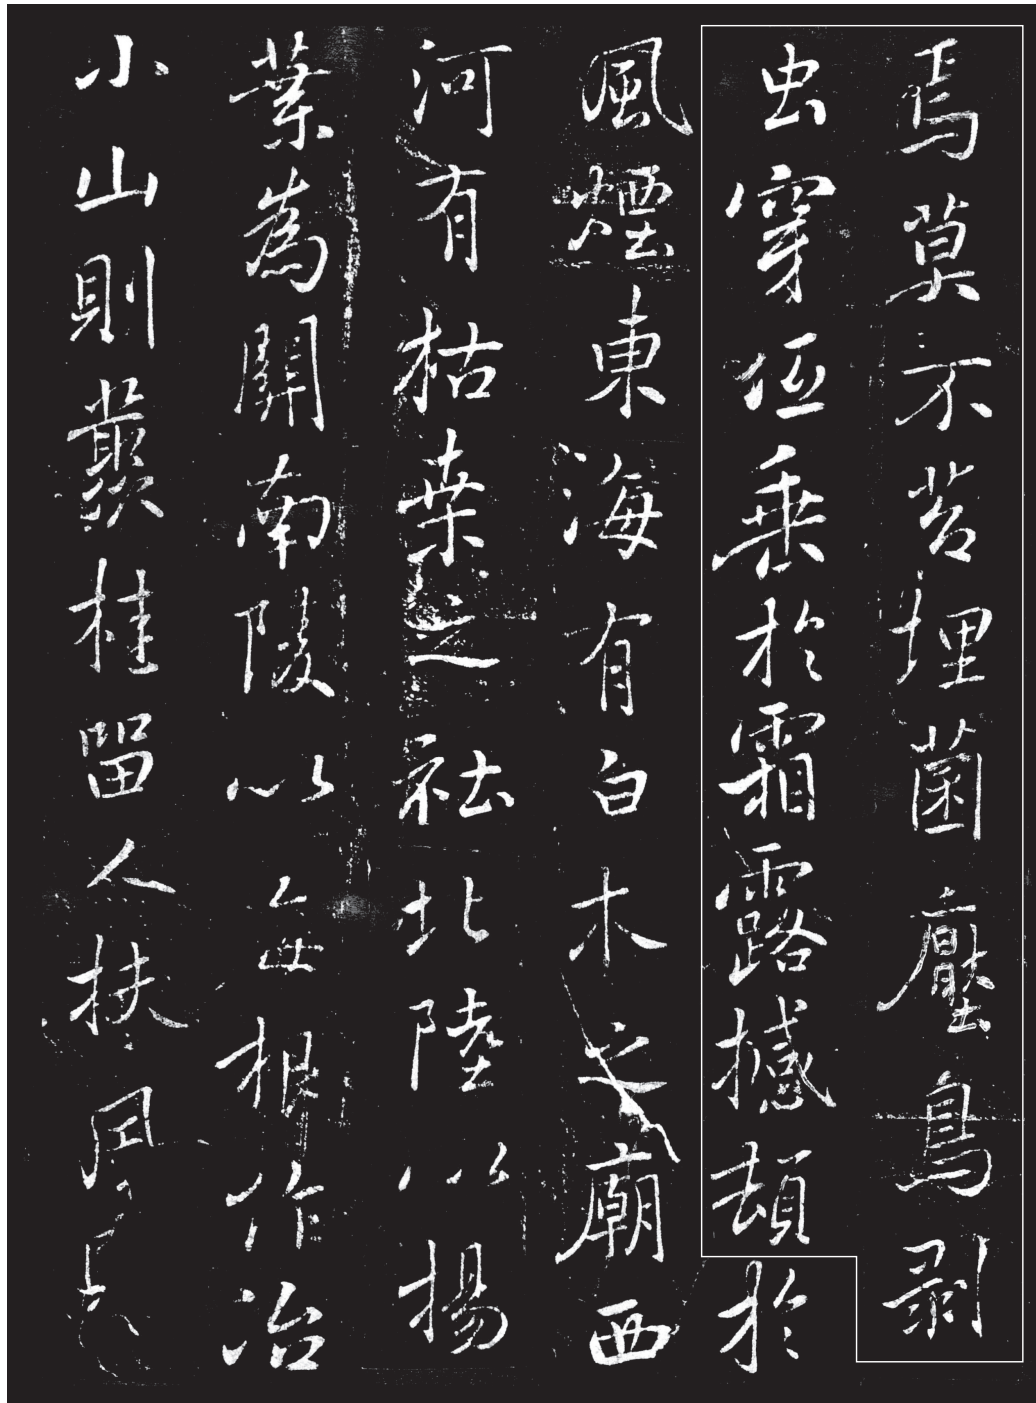 焉莫不苔埋菌壓鳥剝
虫穿低垂於霜露撼頓於
風煙東海有白木之廟西
河有枯桒之社北陸以揚
葉為關南陵以每根作冶
小山則叢桂留人扶風